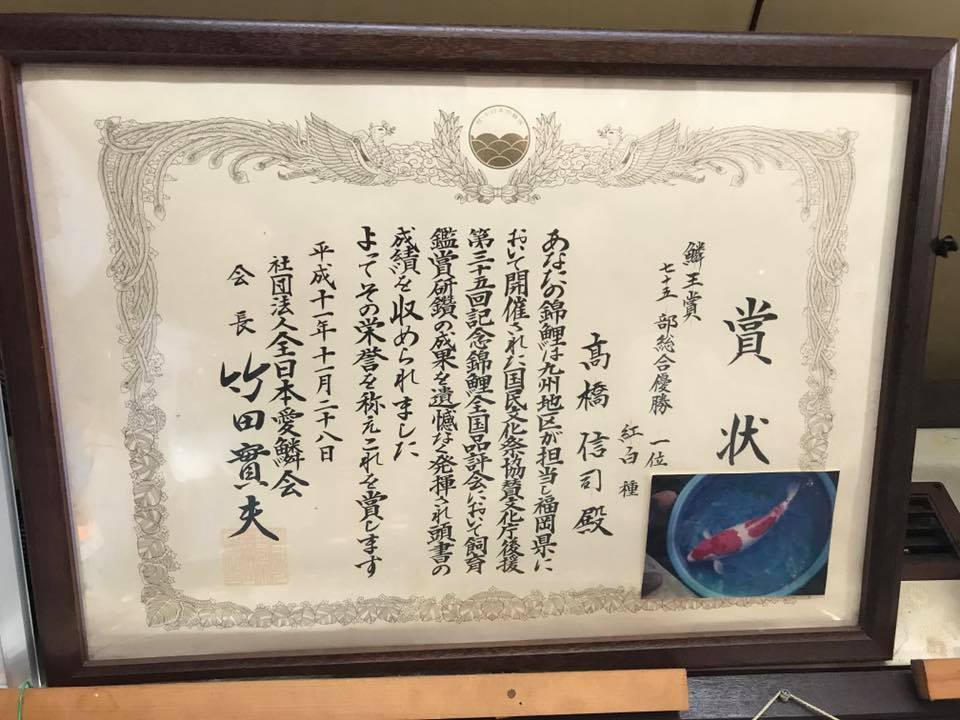 賞状
鱗王賞
七十五 部総合優勝
一位
紅白 種
髙橋信司殿
あなたの錦鯉は九州地区が担当し福岡県に
おいて開催された国民文化祭協賛文化庁後援
第三十五回記念錦鯉全国品評会において飼育
鑑賞研鑽の成果を遺憾なく発揮され頭書の
成績を収められました
よってその栄誉を称えこれを賞します
平成十一年十一月二十八日
社団法人全日本愛鱗会
会長 竹田實夫